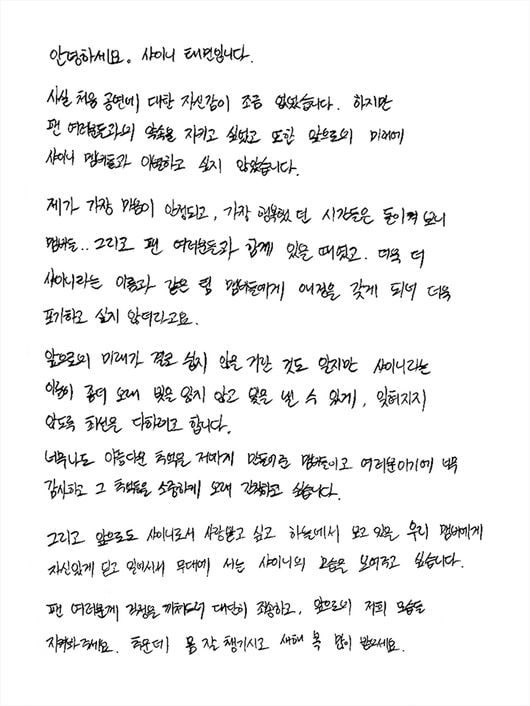 안녕하세요. 샤이니 태민입니다.
사실 처음 공연에 대한 자신감이 조금 없었습니다. 하지만
팬 여러분들과의 약속을 지키고 싶었고 또한 앞으로의 미래에
샤이니 멤버들과 이별하고 싶지 않았습니다.
제가 가장 마음이 안정되고, 가장 행복했던 시간들은 돌이켜 보니
멤버들.. 그리고 팬 여러분들과 함께 있을 때였고. 더욱 더
샤이니라는 이름과 같은 팀 멤버들에게 애정을 갖게 되니 더욱
포기하고 싶지 않더라고요.
앞으로의 미래가 결코 쉽지 않을 거란 것도 알지만 샤이니라는
이름이 좀더 오래 빛을 잃지 않고 빛을 낼 수 있게, 잊혀지지
않도록 최선을 다하려고 합니다.
너무나도 아름다운 추억을 저에게 만들어준 멤버들이고 여러분이기에 너무
감사하고 그 추억들을 소중하게 오래 간직하고 싶습니다.
그리고 앞으로도 샤이니로서 사랑받고 싶고 하늘에서 보고 있을 우리 멤버에게
자신있게 딛고 일어서서 무대에 서는 샤이니의 모습을 보여주고 싶습니다.
팬 여러분께 걱정을 끼쳐드려 대단히 죄송하고, 앞으로의 저희 모습을
지켜봐주세요. 추운데 몸 잘 챙기시고 새해 복 많이 받으세요.